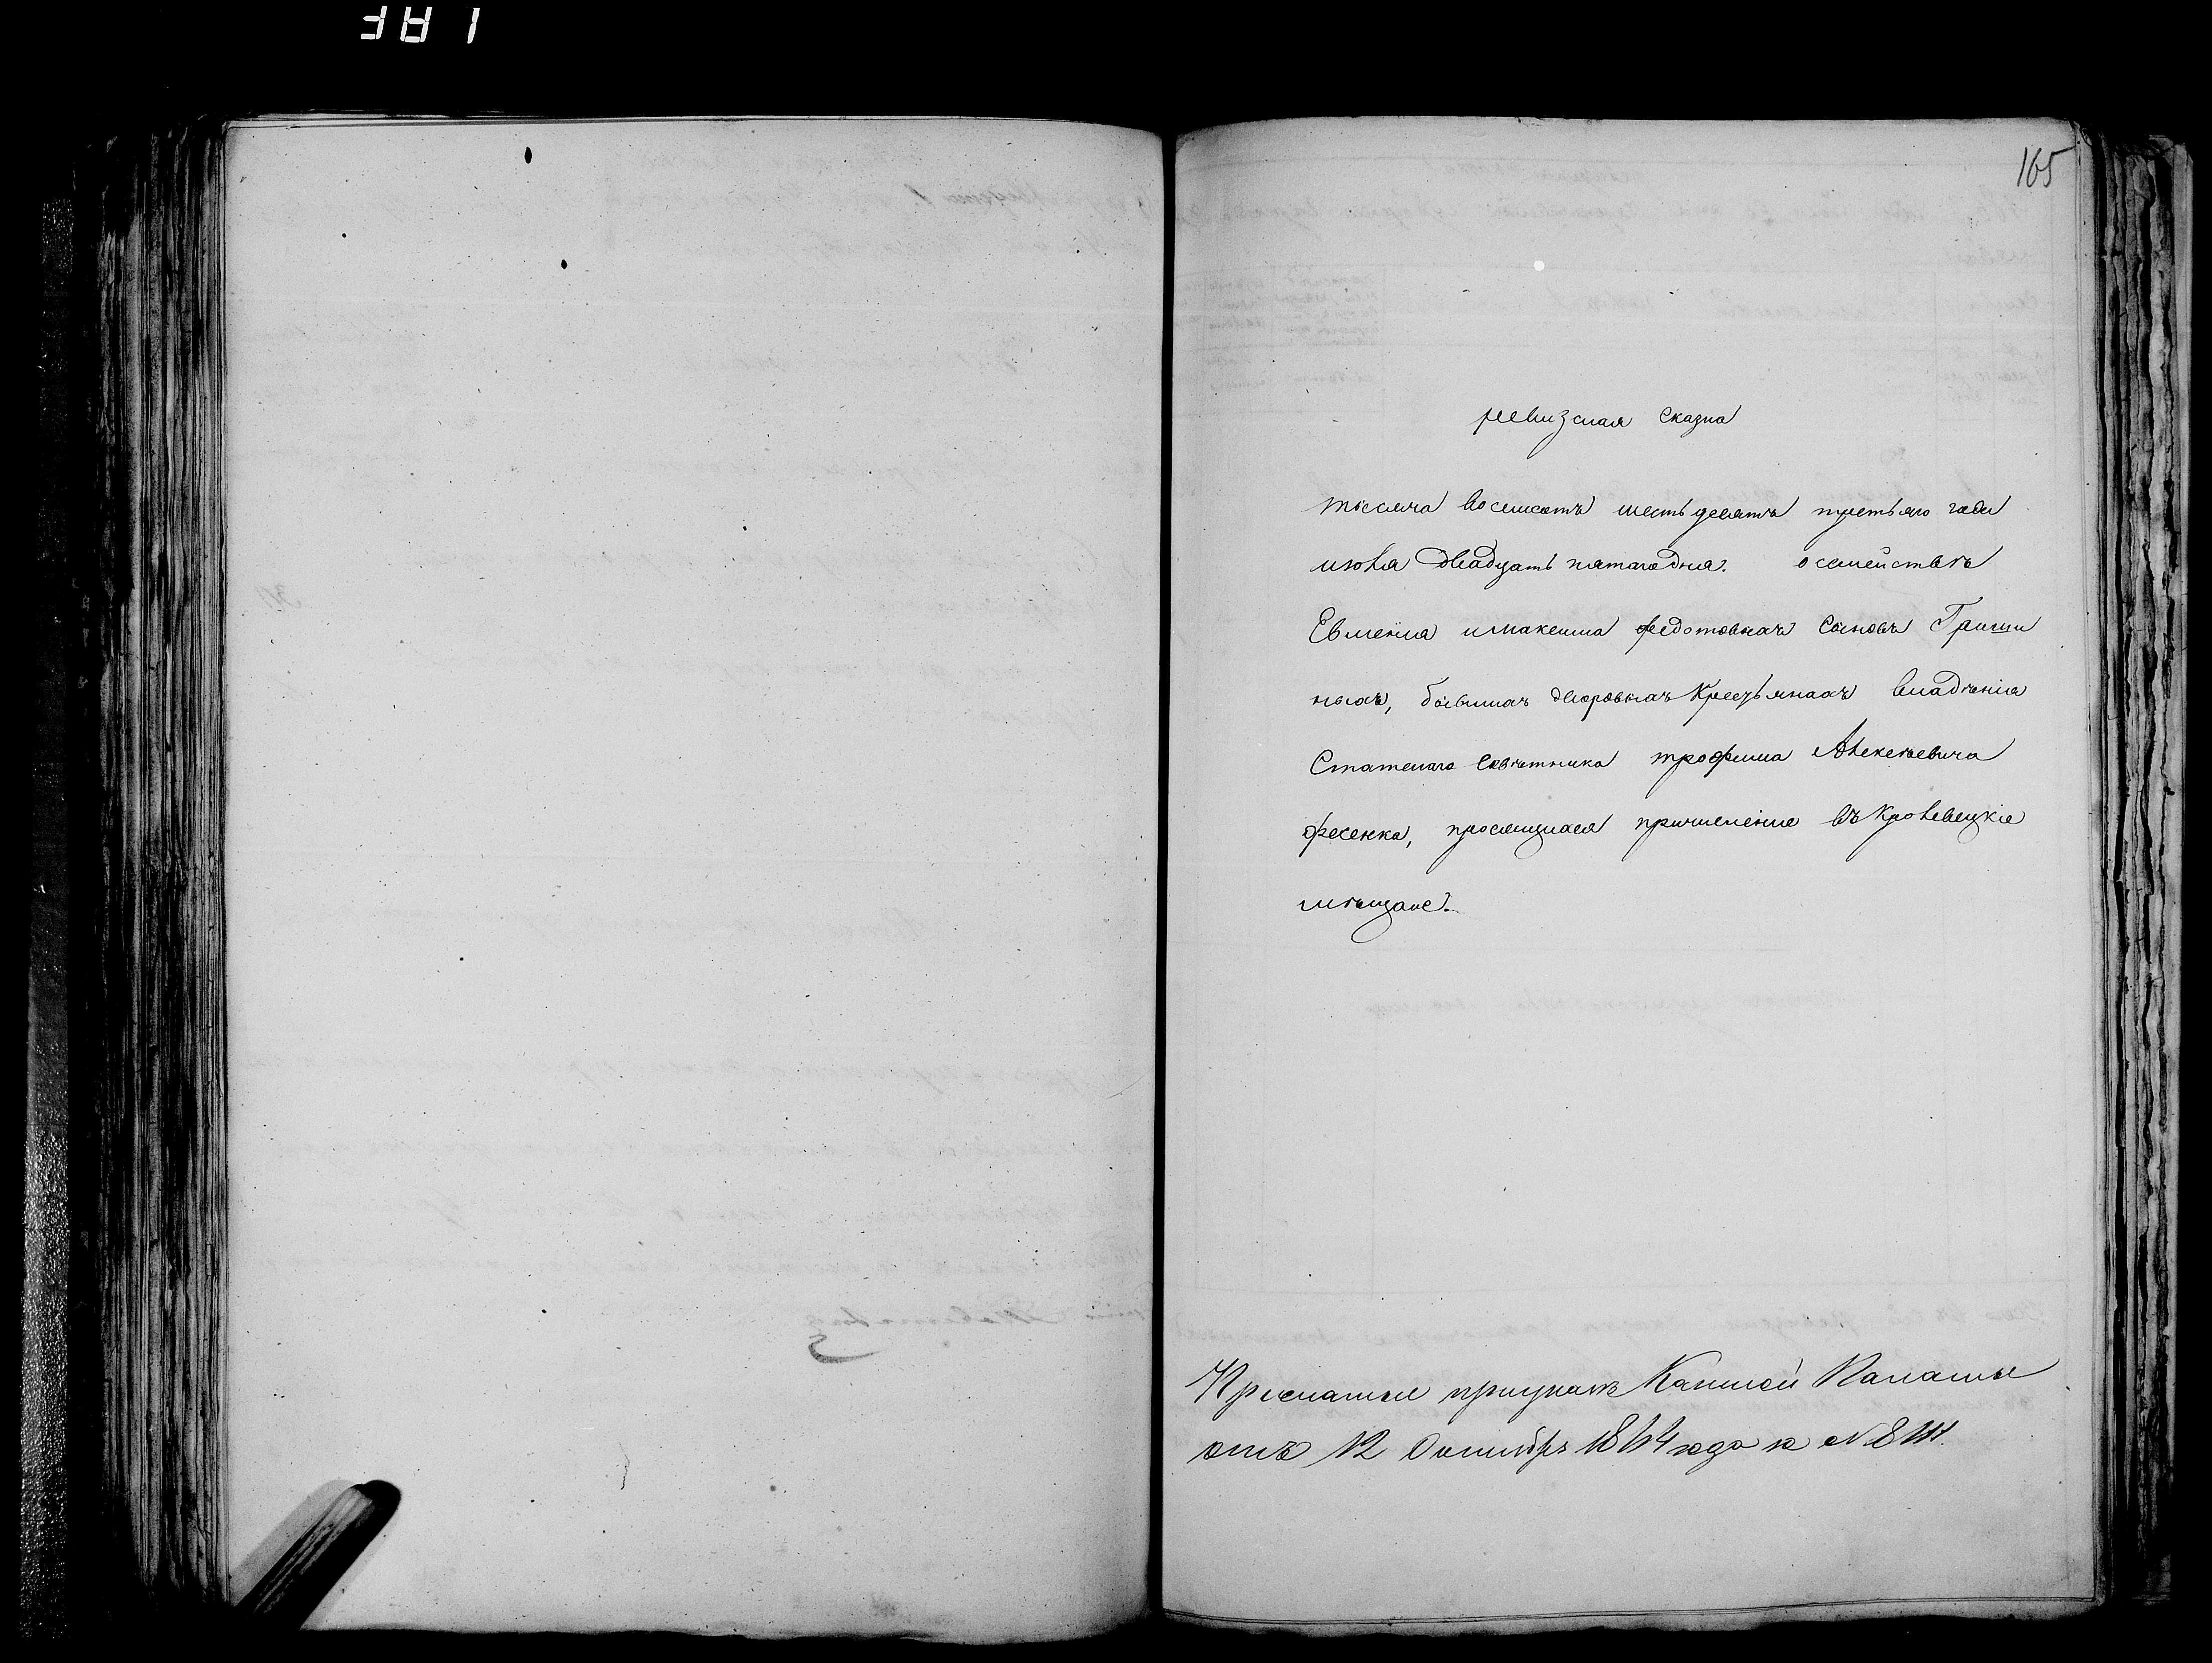 165
ревизская сказка
тысяча восемсотъ шестьдесятъ третьяго года
июля двадцать пятаго дня. о семействѣ
Евмения и Максима федотовыхъ сыновъ Гриши
ныхъ, бывшихъ дворовыхъ крестьянахъ владѣнія
Статскаго Совѣтника трофима Алексѣевича
фесенка, просящихся причисленіе въ Кролевецкіе
мѣщане.
при указѣ Казенной Палаты
отъ 12 Октября 1864 года за №